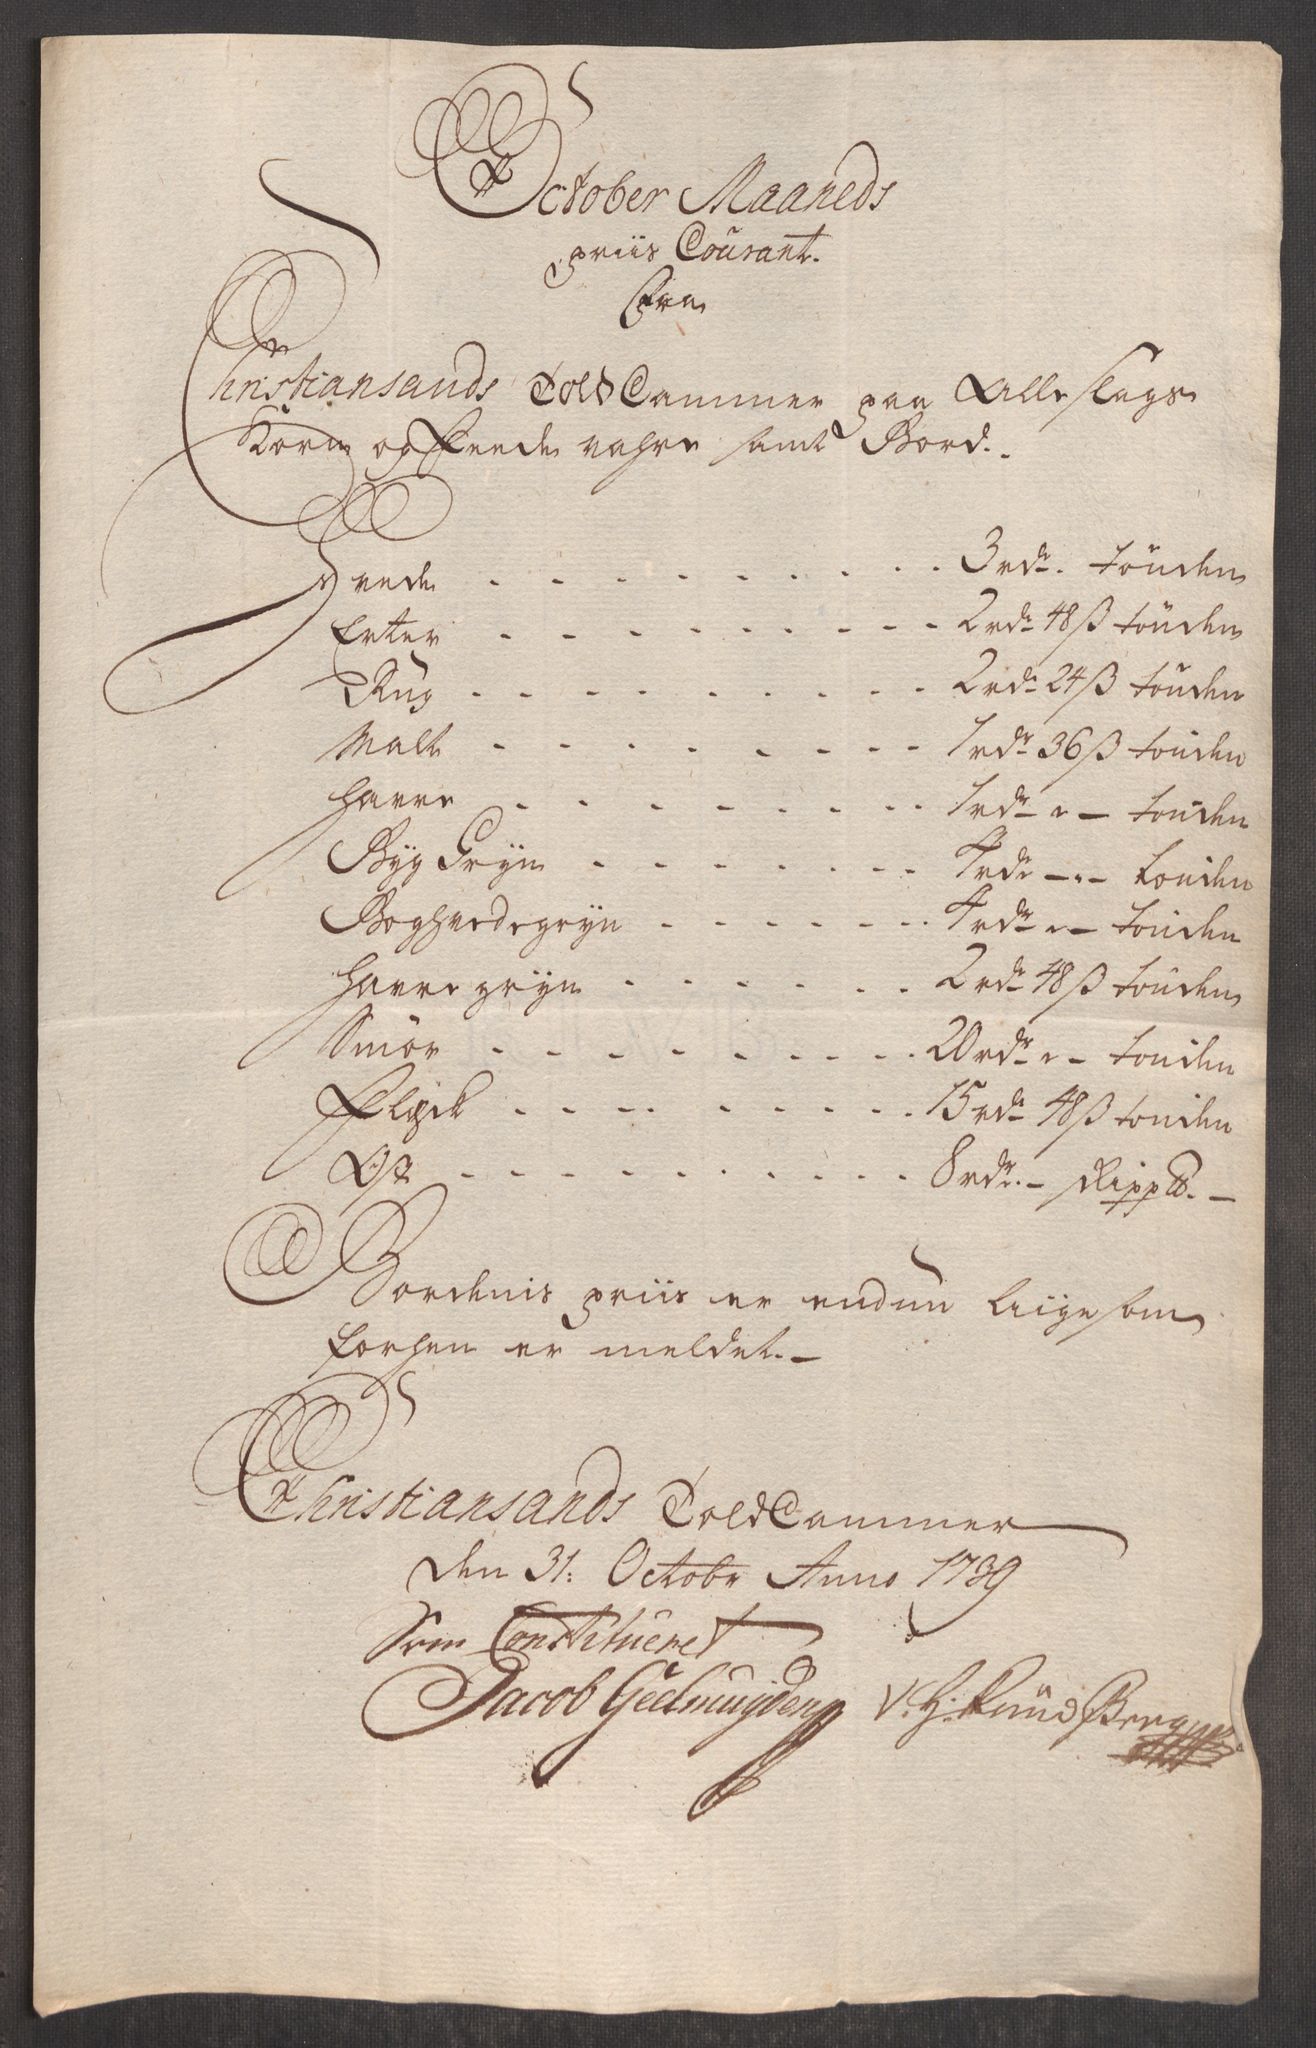 October Maaneds
priis Courant.
Fra
Christiansands Told Cammer paa Alle slags
Korn og Feede vahre samt Bord.
Hvede - - - - - - - - 3 rdr. tønden
Erter - - - - - - - - 2 rdr 48 ß tønden
Rug - - - - - - - - 2 rdr 24 ß tønden
Malt - - - - - - - - 1 rdr 36 ß tønden
Havre - - - - - - - - 1 rdr " - tønden
Byg Gryn - - - - - - 4 rdr - " - tønden
Boghvedegryn - - - - - - 4 rdr " - tønden
Havre gryn - - - - - - 2 rdr 48 ß tønden
Smør - - - - - - - - 20 rdr " - tønden
Flesk - - - - - - - - 15 rdr 48 ß tønden
Ost - - - - - - - - 8 rdr. - Skipp℔. -
Bordenis priis er endnu liige som
forhen er meldet. -
Christiansands Told Cammer
den 31: Octobr Anno 1739
Som Constitueret
Jacob Geelmuyden V. H. Knüd Berg